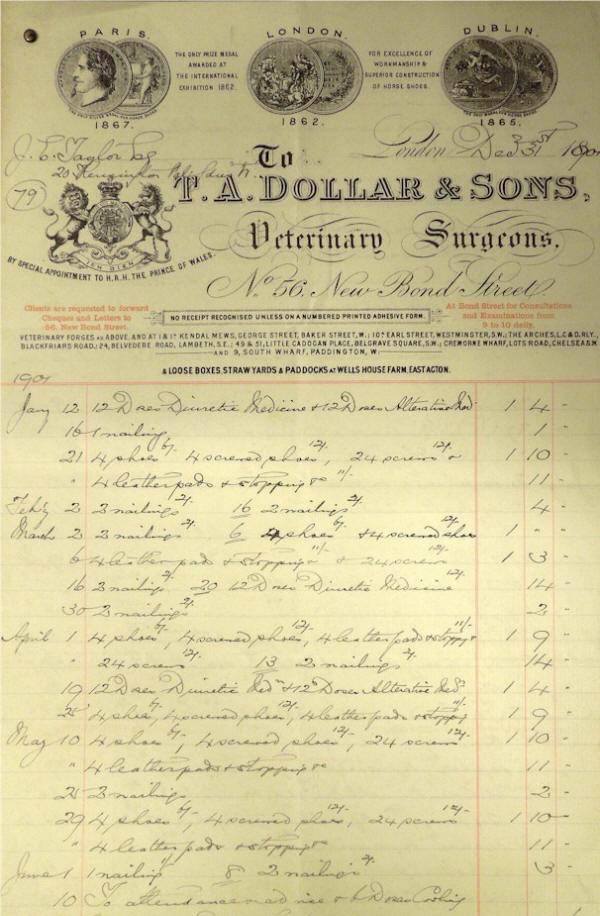 PARIS. LONDON. DUBLIN.
THE ONLY PRIZE MEDAL
AWARDED AT
THE INTERNATIONAL
EXHIBITION 1862.
FOR EXCELLENCE OF
WORKMANSHIP &
SUPERIOR CONSTRUCTION
OF HORSE SHOES.
1867. 1862. 1865.
J. E. Taylor Esq
20 Kensington
79
London Dec 31st 190
To
T. A. DOLLAR & SONS,
Veterinary Surgeons,
ICH DIEN
BY SPECIAL APPOINTMENT TO H.R.H. THE PRINCE OF WALES.
No 56, New Bond Street
Clients are requested to forward
Cheques and Letters to
56, New Bond Street.
NO RECEIPT RECOGNISED UNLESS ON A NUMBERED PRINTED ADHESIVE FORM.
At Bond Street for Consultations
and Examinations from
9 to 10 daily.
VETERINARY FORGES AS ABOVE, AND AT 1 & 1A KENDAL MEWS, GEORGE STREET, BAKER STREET, W.; 10A EARL STREET, WESTMINSTER, S.W.; THE ARCHES, L.C. & D. RLY.,
BLACKFRIARS ROAD; 24, BELVEDERE ROAD, LAMBETH, S.E.; 49 & 51, LITTLE CADOGAN PLACE, BELGRAVE SQUARE, S.W.; CREMORNE WHARF, LOTS ROAD, CHELSEA, S.W.
AND 9, SOUTH WHARF, PADDINGTON, W;
& LOOSE BOXES, STRAW YARDS & PADDOCKS AT WELLS HOUSE FARM, EAST ACTON.
1901
Jany 12 12 Doses Diuretic Medicine & 12 Doses Alterative Med 1 4 -
16 1 nailing 1 -
21 4 shoes 6/- 4 screwed shoes, 12/- 24 screws 12/- & 1 10 -
" 4 leather pads & stopping &c 11/- 11 -
Feby 2 2 nailings 2/- 16 2 nailings 2/- 4 -
March 2 2 nailings 2/- 6 4 shoes 6/- & 4 screwed shoes 12/- 1 " "
6 4 leather pads & stopping 11/- & 24 screws 12/- 1 3 -
16 2 nailings 2/- 20 12 Doses Diuretic Medicine 12/- 14 -
30 2 nailings 2/- 2 -
April 1 4 shoes 6/-, 4 screwed shoes 12/-, 4 leather pads & stopping 11/- 1 9 -
" 24 screws 12/- 13 2 nailings 2/- 14 -
19 12 Doses Diuretic Med & 12 Doses Alterative Med 1 4 -
25 4 shoes 6/-, 4 screwed shoes 12/-, 4 leather pads & stopping 11/- 1 9 -
May 10 4 shoes 6/-, 4 screwed shoes 12/-, 24 screws 12/- 1 10 -
" 4 leather pads & stopping &c 11 -
25 2 nailings 2 -
29 4 shoes 6/-, 4 screwed shoes 12/-, 24 screws 12/- 1 10 -
" 4 leather pads & stopping &c 11 -
June 1 1 nailing 1/- 8 2 nailings 2/- 3 -
10 To attendance advice & 6 Doses Cooling